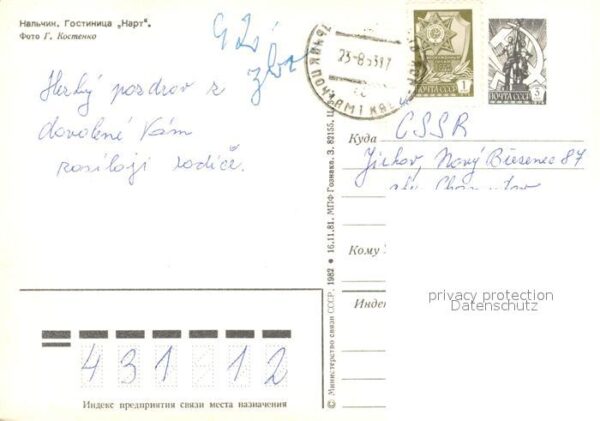 Нальчик. Гостиница „Нарт“.
Фото Г. Костенко
Hezký pozdrav z
dovolené Vám
posílají rodiče.
23-8
ПОЧТА СССР
1
ПОЧТА СССР
3
Куда ČSSR
Jirkov, Nový Březenec 87
okr. Chomutov
Кому
Индекс
privacy protection
Datenschutz
© Министерство связи СССР, 1982 • 16.11.81. МПФ Гознака. З. 82155. Ц.
431 12
Индекс предприятия связи места назначения